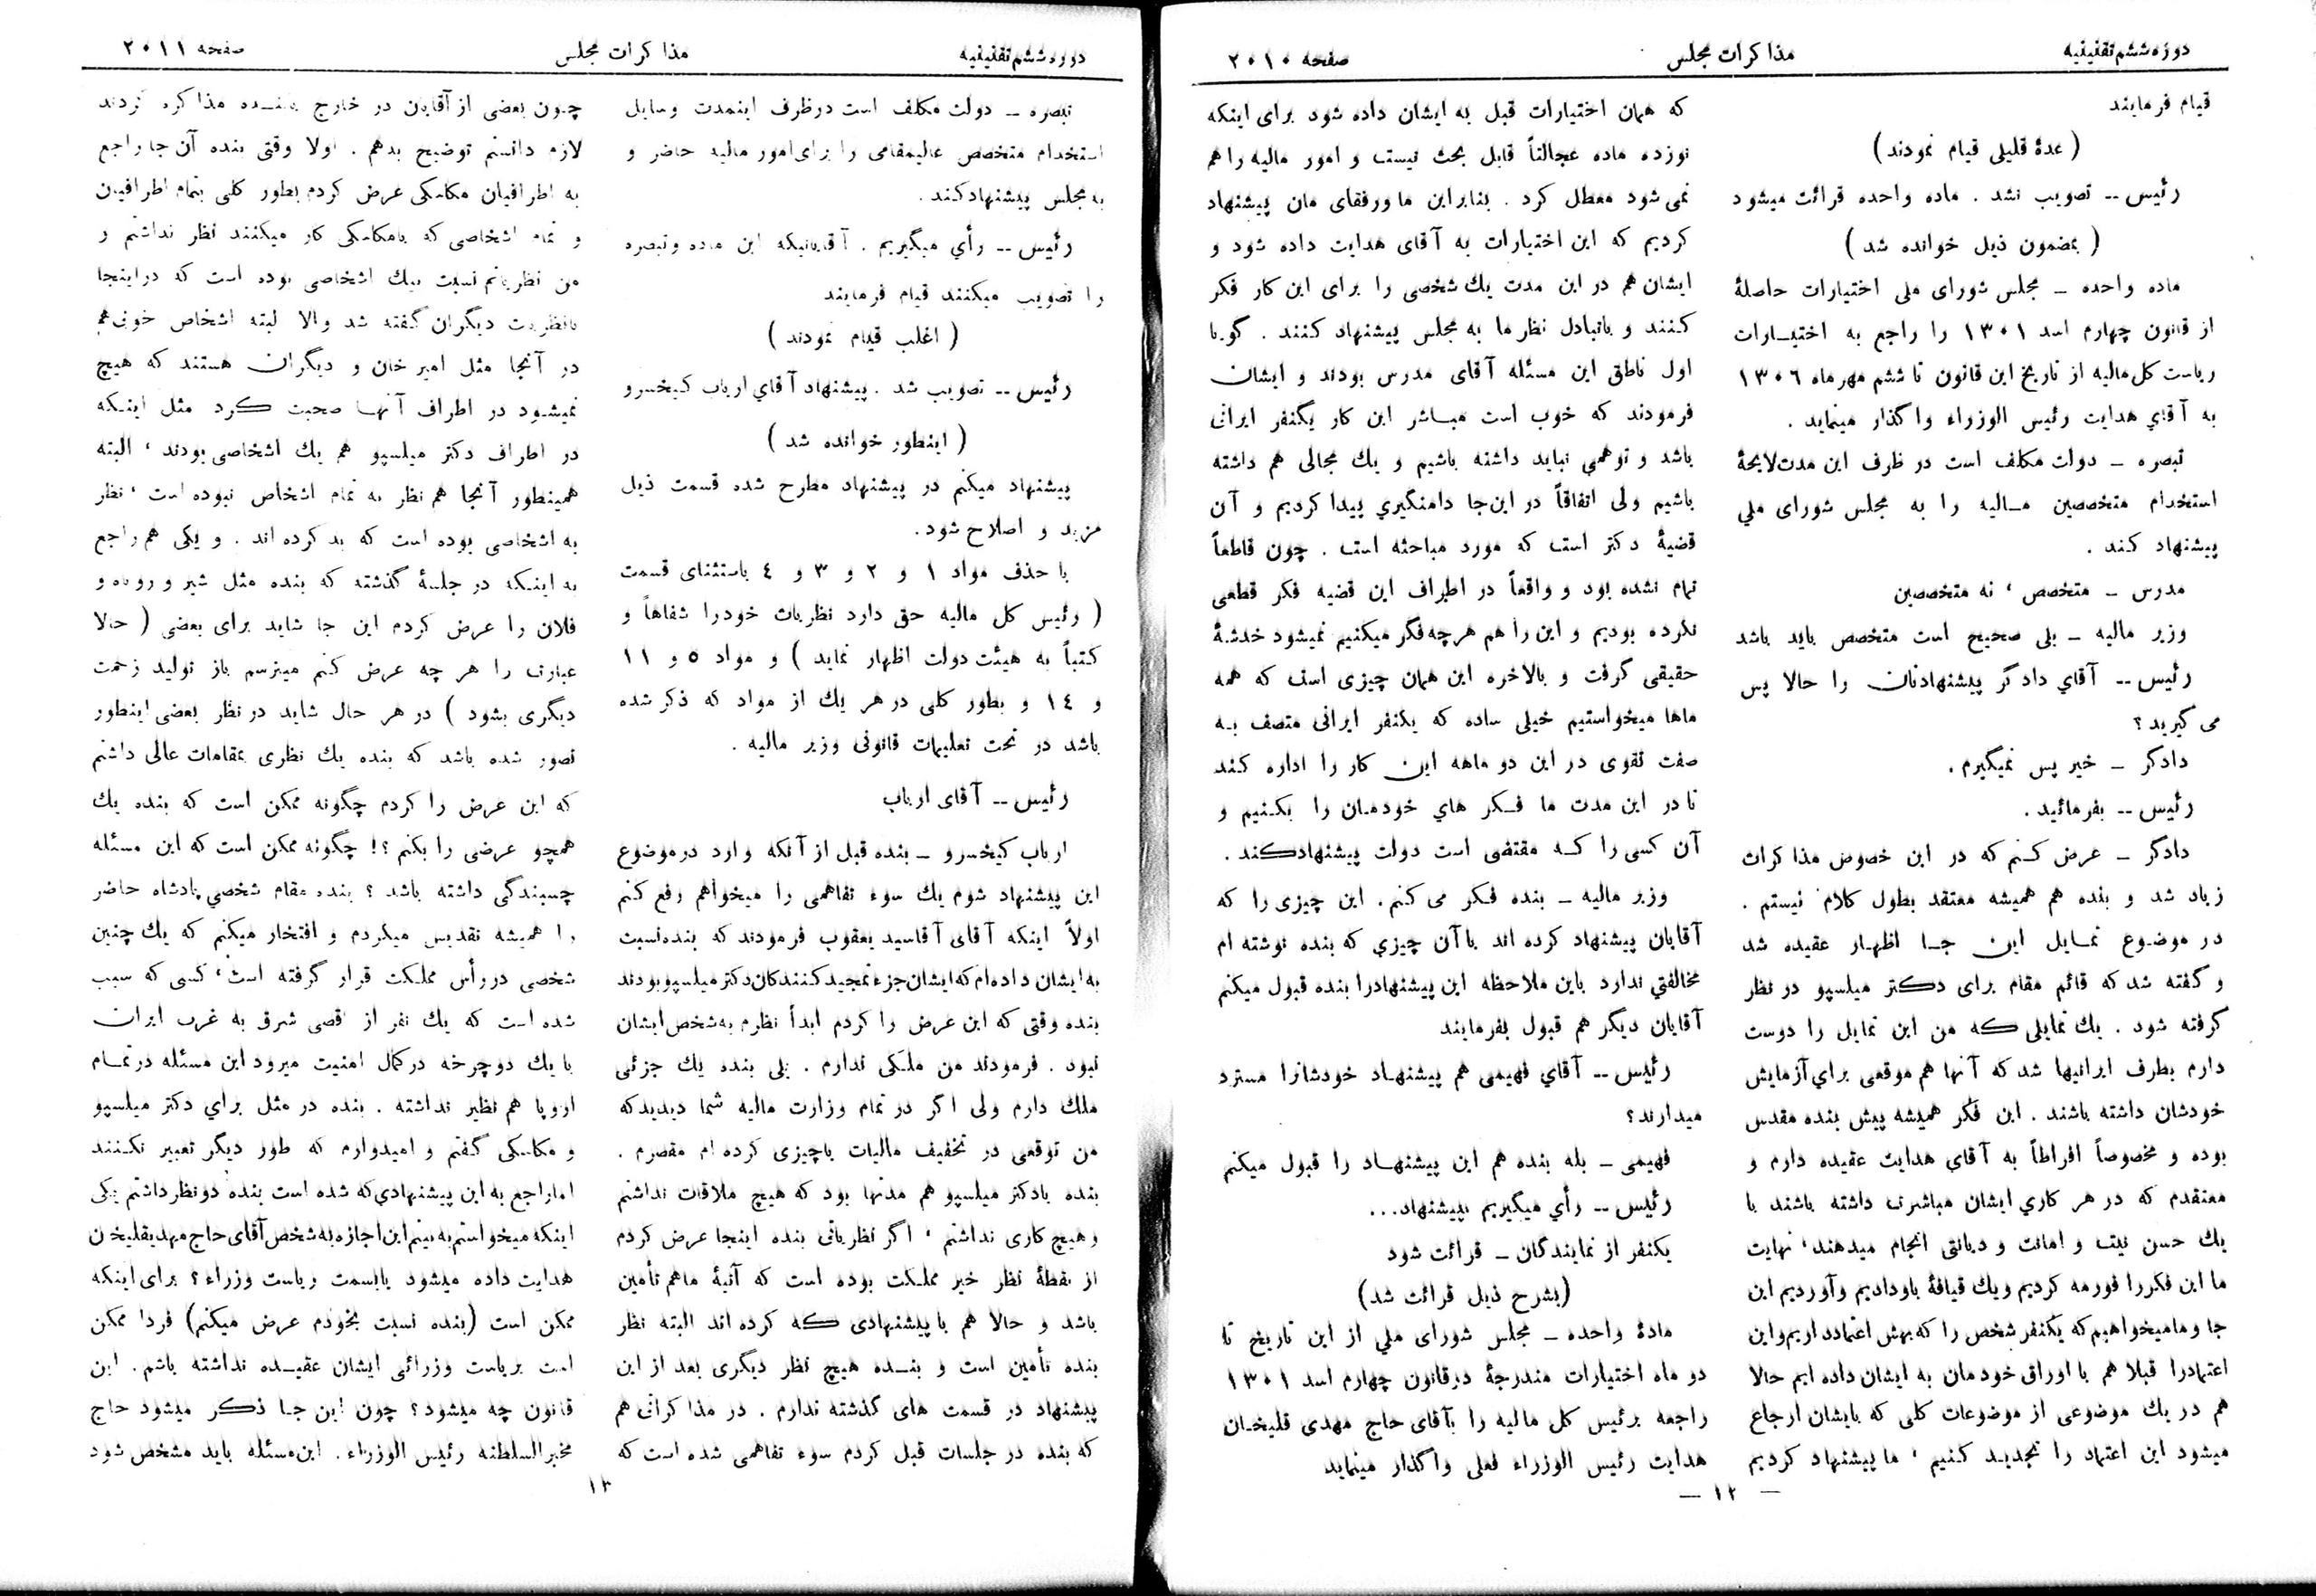 دوره ششم تقنینیه
مذاکرات مجلس
صفحه ۲۰۱۰
قیام فرمایند
(عدۀ قلیلی قیام نمودند)
رئیس -- تصویب نشد . ماده واحده قرائت میشود
(بمضمون ذیل خوانده شد)
ماده واحده ـ مجلس شورای ملی اختیارات حاصلۀ
از قانون چهارم اسد ۱۳۰۱ را راجع به اختیارات
ریاست کل مالیه از تاریخ این قانون تا ششم مهرماه ۱۳۰۶
به آقای هدایت رئیس الوزراء واگذار مینماید .
تبصره ـ دولت مکلف است در ظرف این مدت لایحۀ
استخدام متخصصین مالیه را به مجلس شورای ملی
پیشنهاد کند .
مدرس ـ متخصص ، نه متخصصین
وزیر مالیه ـ بلی صحیح است متخصص باید باشد
رئیس -- آقای دادگر پیشنهادتان را حالا پس
می گیرید ؟
دادگر ـ خیر پس نمیگیرم .
رئیس -- بفرمائید .
دادگر ـ عرض کنم که در این خصوص مذاکرات
زیاد شد و بنده هم همیشه معتقد بطول کلام نیستم .
در موضوع تمایل این جا اظهار عقیده شد
و گفته شد که قائم مقام برای دکتر میلسپو در نظر
گرفته شود . یك تمایلی که من این تمایل را دوست
دارم بطرف ایرانیها شد که آنها هم موقعی برای آزمایش
خودشان داشته باشند . این فکر همیشه پیش بنده مقدس
بوده و مخصوصاً افراطاً به آقای هدایت عقیده دارم و
معتقدم که در هر کاری ایشان مباشرت داشته باشند با
یك حسن نیت و امانت و دیانتی انجام میدهند، نهایت
ما این فکر را فورمه کردیم ویك قیافۀ باودادیم وآوردیم این
جا ومامیخواهیم که یکنفر شخص را که بهش اعتماد داریم واین
اعتماد را قبلا هم با اوراق خودمان به ایشان داده ایم حالا
هم در یك موضوعی از موضوعات کلی که بایشان ارجاع
میشود این اعتماد را تجدید کنیم ، ما پیشنهاد کردیم
که همان اختیارات قبل به ایشان داده شود برای اینکه
نوزده ماده عجالتاً قابل بحث نیست و امور مالیه را هم
نمی شود معطل کرد . بنابراین ما ورفقای مان پیشنهاد
کردیم که این اختیارات به آقای هدایت داده شود و
ایشان هم در این مدت یك شخصی را برای این کار فکر
کنند و باتبادل نظر ما به مجلس پیشنهاد کنند . گویا
اول ناطق این مسئله آقای مدرس بودند و ایشان
فرمودند که خوب است مباشر این کار یکنفر ایرانی
باشد و توهمی نباید داشته باشیم و یك مجالی هم داشته
باشیم ولی اتفاقاً در این‌جا دامنگیری پیدا کردیم و آن
قضیۀ دکتر است که مورد مباحثه است . چون قاطعاً
تمام نشده بود و واقعاً در اطراف این قضیه فکر قطعی
نکرده بودیم و این را هم هرچه فکر میکنیم نمیشود خدشۀ
حقیقی گرفت و بالاخره این همان چیزی است که همه
ماها میخواستیم خیلی ساده که یکنفر ایرانی متصف به
صفت تقوی در این دو ماهه این کار را اداره کند
تا در این مدت ما فکر های خودمان را بکنیم و
آن کسی را که مقتضی است دولت پیشنهادکند .
وزیر مالیه ـ بنده فکر می کنم . این چیزی را که
آقایان پیشنهاد کرده اند با آن چیزی که بنده نوشته ام
مخالفتی ندارد باین ملاحظه این پیشنهادرا بنده قبول میکنم
آقایان دیگر هم قبول بفرمایند
رئیس -- آقای فهیمی هم پیشنهاد خودشانرا مسترد
میدارند؟
فهیمی ـ بله بنده هم این پیشنهاد را قبول میکنم
رئیس -- رأی میگیریم بپیشنهاد...
یکنفر از نمایندگان ـ قرائت شود
(بشرح ذیل قرائت شد)
مادۀ واحده ـ مجلس شورای ملی از این تاریخ تا
دو ماه اختیارات مندرجۀ درقانون چهارم اسد ۱۳۰۱
راجعه برئیس کل مالیه را بآقای حاج مهدی قلیخان
هدایت رئیس الوزراء فعلی واگذار مینماید
— ۱۲ —
دوره ششم تقنینیه
مذاکرات مجلس
صفحه ۲۰۱۱
تبصره ـ دولت مکلف است درظرف اینمدت وسایل
استخدام متخصص عالیمقامی را برای امور مالیه حاضر و
به مجلس پیشنهادکند .
رئیس -- رأی میگیریم . آقایانیکه این ماده وتبصره
را تصویب میکنند قیام فرمایند
(اغلب قیام نمودند)
رئیس -- تصویب شد . پیشنهاد آقای ارباب کیخسرو
(اینطور خوانده شد)
پیشنهاد میکنم در پیشنهاد مطرح شده قسمت ذیل
مزید و اصلاح شود .
با حذف مواد ۱ و ۲ و ۳ و ٤ باستثنای قسمت
( رئیس کل مالیه حق دارد نظریات خودرا شفاهاً و
کتباً به هیئت دولت اظهار نماید ) و مواد ٥ و ۱۱
و ۱٤ و بطور کلی در هر یك از مواد که ذکر شده
باشد در تحت تعلیمات قانونی وزیر مالیه .
رئیس -- آقای ارباب
ارباب کیخسرو ـ بنده قبل از آنکه وارد درموضوع
این پیشنهاد شوم یك سوء تفاهمی را میخواهم رفع کنم
اولاً اینکه آقای آقاسید یعقوب فرمودند که بنده نسبت
به ایشان داده‌ام که ایشان جزء تمجید کنندگان دکتر میلسپو بودند
بنده وقتی که این عرض را کردم ابدأ نظرم به شخص ایشان
نبود . فرمودند من ملکی ندارم . بلی بنده یك جزئی
ملك دارم ولی اگر در تمام وزارت مالیه شما دیدیدکه
من توقعی در تخفیف مالیات یاچیزی کرده ام مقصرم .
بنده بادکتر میلسپو هم مدتها بود که هیچ ملاقات نداشتم
وهیچ کاری نداشتم ، اگر نظریاتی بنده اینجا عرض کردم
از نقطۀ نظر خیر مملکت بوده است که آتیۀ ماهم تأمین
باشد و حالا هم با پیشنهادی که کرده اند البته نظر
بنده تأمین است و بنده هیچ نظر دیگری بعد از این
پیشنهاد در قسمت های گذشته ندارم . در مذاکراتی هم
که بنده در جلسات قبل کردم سوء تفاهمی شده است که
چون بعضی از آقایان در خارج بابنده مذاکره کردند
لازم دانستم توضیح بدهم . اولا وقتی بنده آن جا راجع
به اطرافیان مکاسکی عرض کردم بطور کلی بتمام اطرافیان
و تمام اشخاصی که بامکاسکی کار میکنند نظر نداشتم و
من نظریاتم نسبت بیك اشخاصی بوده است که دراینجا
بانظریات دیگران گفته شد والا البته اشخاص خوبی هم
در آنجا مثل امیر خان و دیگران هستند که هیچ
نمیشود در اطراف آنها صحبت کرد مثل اینکه
در اطراف دکتر میلسپو هم یك اشخاصی بودند ، البته
همینطور آنجا هم نظر به تمام اشخاص نبوده است ، نظر
به اشخاصی بوده است که بد کرده اند . و یکی هم راجع
به اینکه در جلسۀ گذشته که بنده مثل شیر و روباه و
فلان را عرض کردم این جا شاید برای بعضی ( حالا
عبارت را هر چه عرض کنم میترسم باز تولید زحمت
دیگری بشود ) در هر حال شاید در نظر بعضی اینطور
تصور شده باشد که بنده یك نظری بمقامات عالی داشتم
که این عرض را کردم چگونه ممکن است که بنده یك
همچو عرضی را بکنم ؟! چگونه ممکن است که این مسئله
چسبندگی داشته باشد ؟ بنده مقام شخصی پادشاه حاضر
را همیشه تقدیس میکردم و افتخار میکنم که یك چنین
شخصی در رأس مملکت قرار گرفته است ، کسی که سبب
شده است که یك نفر از اقصی شرق به غرب ایران
با یك دوچرخه درکمال امنیت میرود این مسئله درتمام
اروپا هم نظیر نداشته . بنده در مثل برای دکتر میلسپو
و مکاسکی گفتم و امیدوارم که طور دیگر تعبیر نکنند
اما راجع به این پیشنهادی که شده است بنده دونظر داشتم یکی
اینکه میخواستم به بینم این اجازه به شخص آقای حاج مهدیقلیخان
هدایت داده میشود یابسمت ریاست وزراء ؟ برای اینکه
ممکن است (بنده نسبت بخودم عرض میکنم) فردا ممکن
است بریاست وزرائی ایشان عقیده نداشته باشم . این
قانون چه میشود ؟ چون این جا ذکر میشود حاج
مخبرالسلطنه رئیس الوزراء . این‌مسئله باید مشخص شود
۱۳